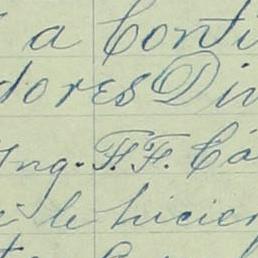 a Conti
dores Div
Ing. F.F. Cá
le hicier